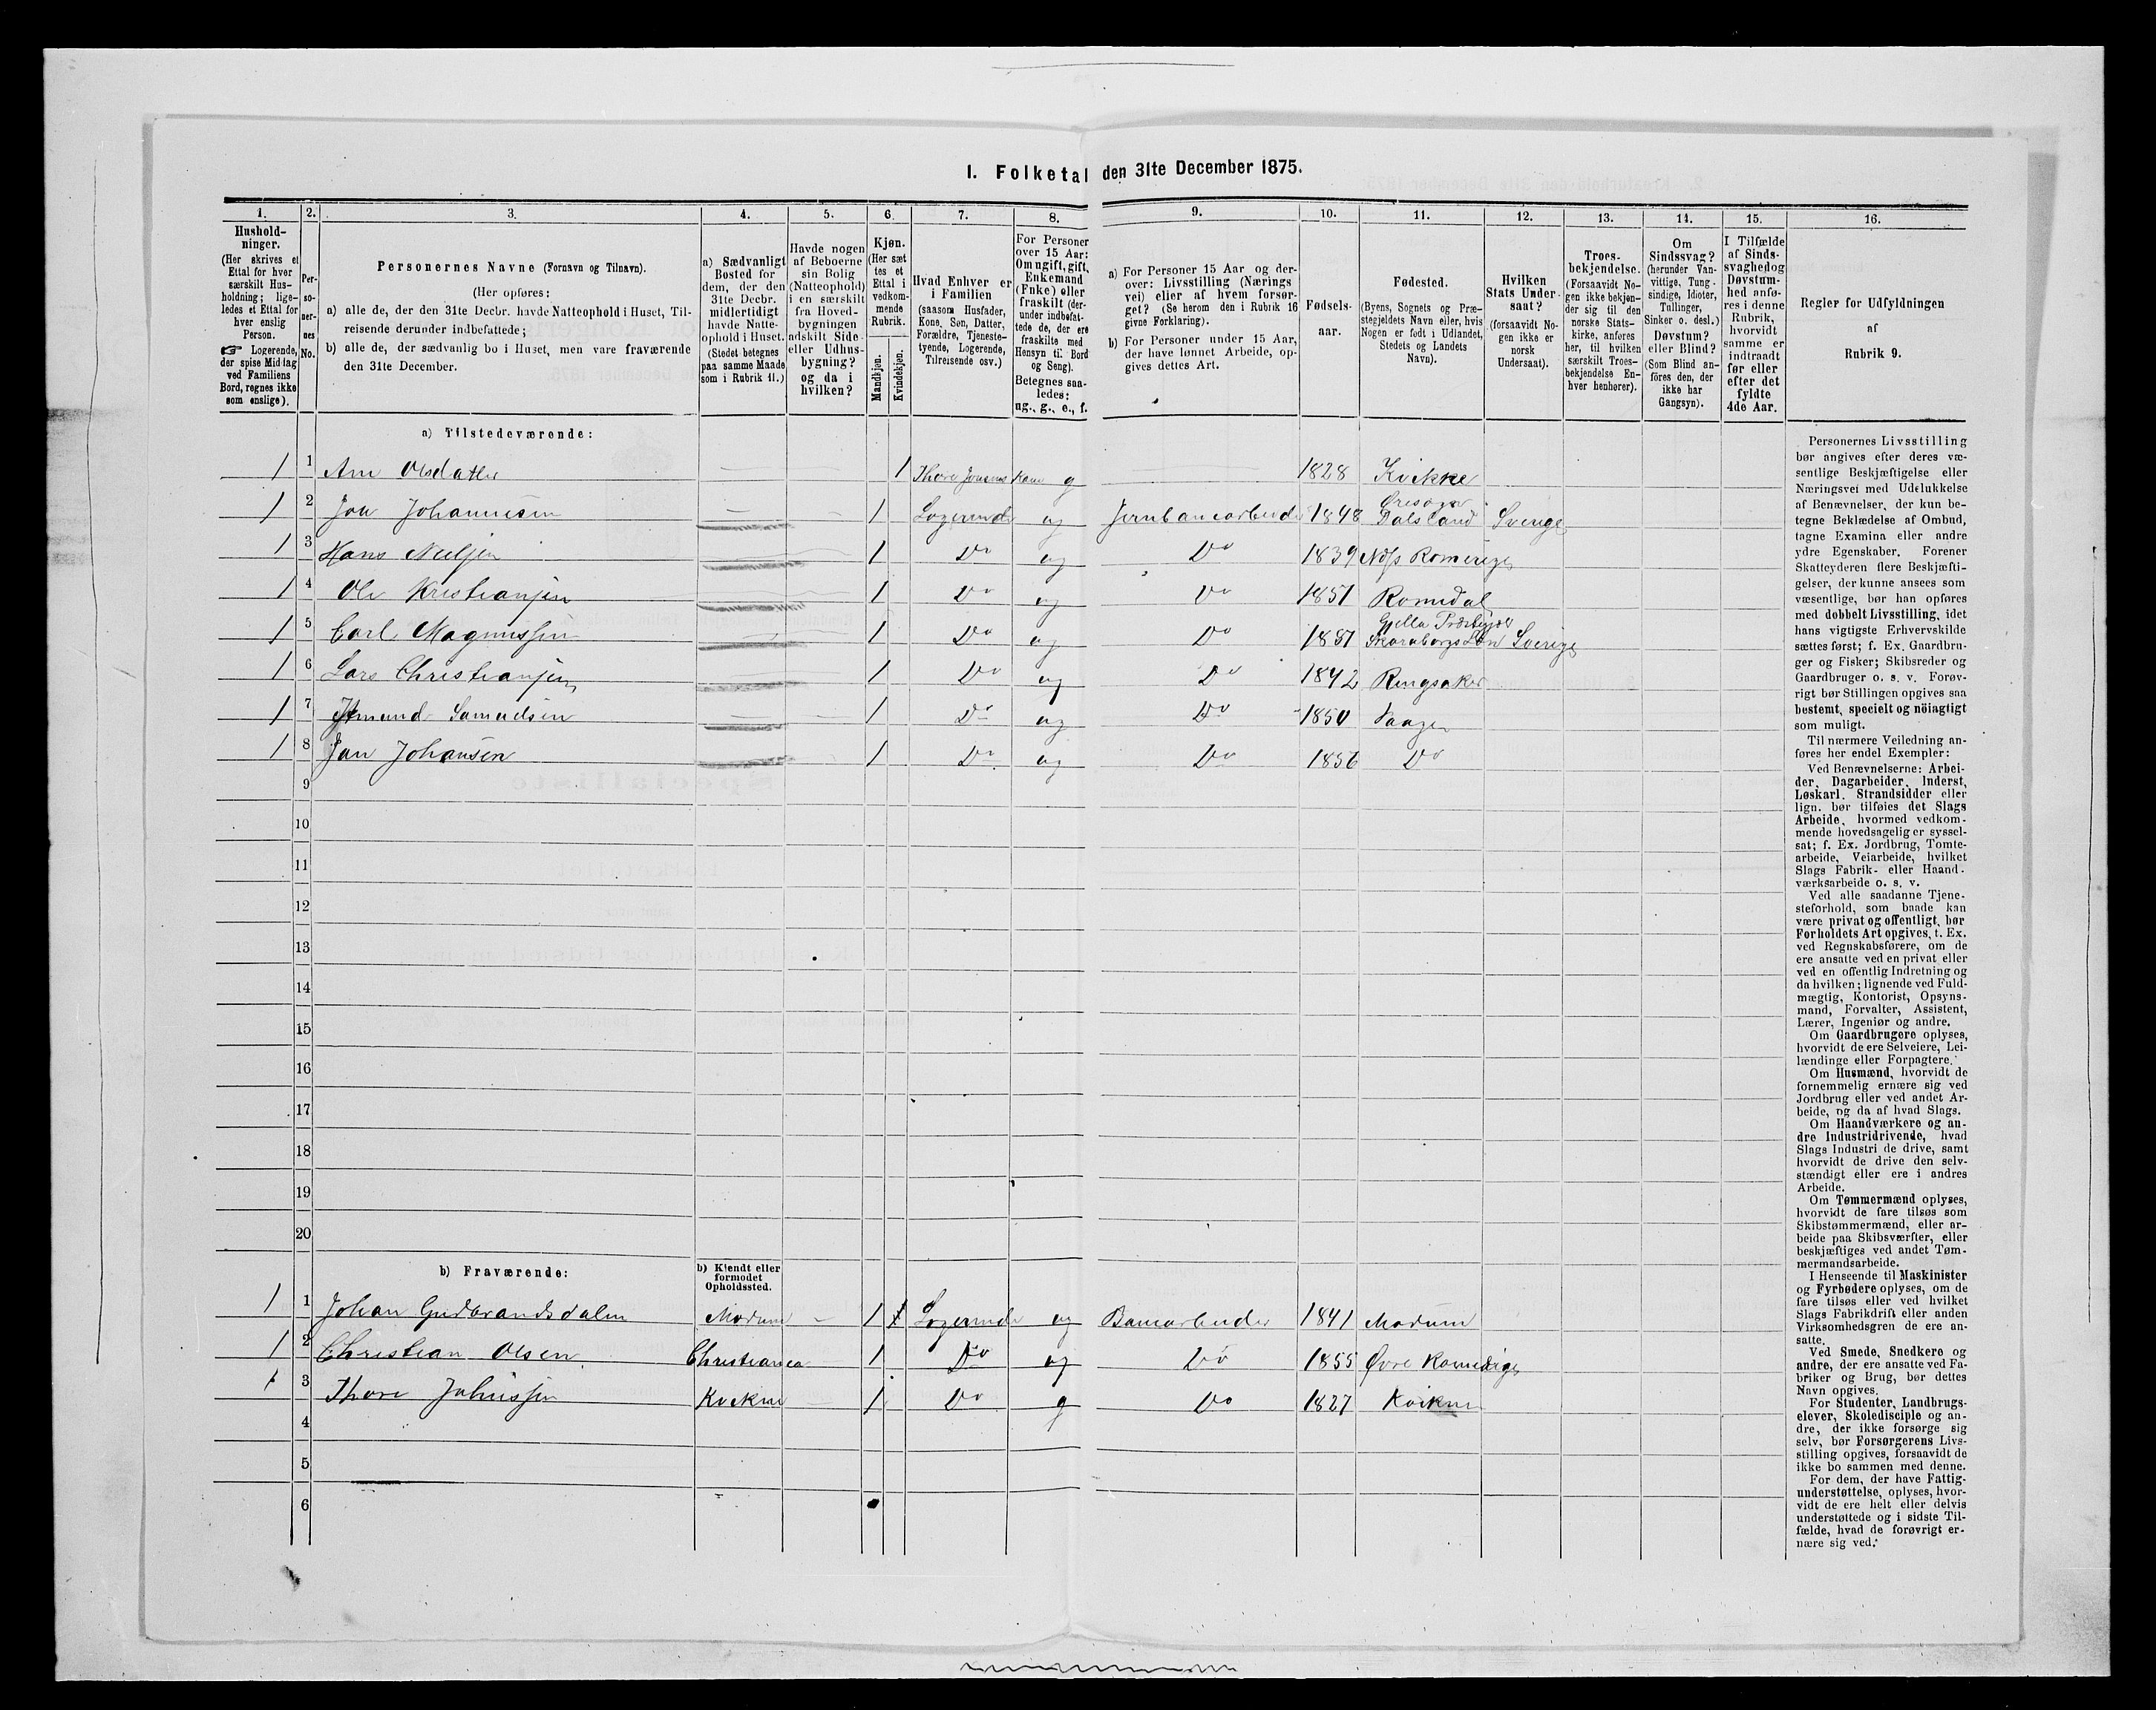 I. Folketal den 31te December 1875.
1. 2. 3. 4. 5. 6. 7. 8. 9. 10. 11. 12. 13. 14. 15. 16.
Hushold-
ninger.
(Her skrives et
Ettal for hver
særskilt Hus-
holdning; lige-
ledes et Ettal for
hver enslig
Person.
☞ Logerende,
der spise Middag
ved Familiens
Bord, regnes ikke
som enslige).
Per-
so-
ner-
nes
No.
Personernes Navne (Fornavn og Tilnavn).
(Her opføres:
a) alle de, der den 31te Decbr. havde Natteophold i Huset, Til-
reisende derunder indbefattede;
b) alle de, der sædvanlig bo i Huset, men vare fraværende
den 31te December.
a) Sædvanligt
Bosted for
dem, der den
31te Decbr.
midlertidigt
havde Natte-
ophold i Huset.
(Stedet betegnes
paa samme Maade
som i Rubrik 11.)
Havde nogen
af Beboerne
sin Bolig
(Natteophold)
i en særskilt
fra Hoved-
bygningen
adskilt Side-
eller Udhus-
bygning?
og da i
hvilken?
Kjøn.
(Her sæt
tes et
Ettal i
vedkom-
mende
Rubrik.
Mandkjøn.
Kvindekjøn.
Hvad Enhver er
i Familien
(saasom Husfader,
Kone, Søn, Datter,
Forældre, Tjeneste-
tyende, Logerende,
Tilreisende osv.)
For Personer
over 15 Aar:
Om ugift, gift,
Enkemand
(Enke) eller
fraskilt (der-
under indbefat-
tede de, der ere
fraskilte med
Hensyn til Bord
og Seng).
Betegnes saa-
ledes:
ug., g., e., f.
a) For Personer 15 Aar og der-
over: Livsstilling (Nærings
vei) eller af hvem forsør-
get? (Se herom den i Rubrik 16
givne Forklaring).
b) For Personer under 15 Aar,
der have lønnet Arbeide, op-
gives dettes Art.
Fødsels-
aar.
Fødested.
(Byens, Sognets og Præ-
stegjeldets Navn eller, hvis
Nogen er født i Udlandet,
Stedets og Landets
Navn).
Hvilken
Stats Under-
saat?
(forsaavidt No-
gen ikke er
norsk
Undersaat).
Troes-
bekjendelse.
(Forsaavidt No-
gen ikke bekjen-
der sig til den
norske Stats-
kirke, anføres
her, til hvilken
særskilt Troes-
bekjendelse En-
hver henhører).
Om
Sindssvag?
(herunder Van-
vittige, Tung-
sindige, Idioter,
Tullinger,
Sinker o. desl.)
Døvstum?
eller Blind?
(Som Blind an-
føres den, der
ikke har
Gangsyn).
I Tilfælde
af Sinds-
svaghed og
Døvstum-
hed anfø-
res i denne
Rubrik,
hvorvidt
samme er
indtraadt
før eller
efter det
fyldte
4de Aar.
Regler for Udfyldningen
af
Rubrik 9.
a) Tilstedeværende:
1 1 Ane Olsdatter 1 Thore Jonsens Kone g 1828 Kvikne
1 2 Jon Johannesen 1 Logerende ug Jernbanearbeider 1848 Dalsland Sverige
1 3 Hans Nielsen 1 Do ug Do 1839 Næss Romerige
1 4 Ole Kristiansen 1 Do ug Do 1851 Romedal
1 5 Carl Magnussen 1 Do ug Do 1851 Skaraborgs Län Sverige
1 6 Lars Christiansen 1 Do ug Do 1842 Ringsaker
1 7 Samuelsen 1 Do ug Do 1850 Vaage
1 8 Jan Johansen 1 Do ug Do 1856 Do
9
10
11
12
13
14
15
16
17
18
19
20
b) Fraværende:
b) Kjendt eller
formodet
Opholdssted.
1 1 Johan Gudbrandsdalen Modum 1 Logerende ug Banearbeider 1841 Modum
1 2 Christian Olsen Christiania 1 Do ug Do 1855 Øvre Romerige
1 3 Thore Johnssen Kvikne 1 Do g Do 1827 Kvikne
4
5
6
Personernes Livsstilling
bør angives efter deres væ-
sentlige Beskjæftigelse eller
Næringsvei med Udelukkelse
af Benævnelser, der kun be-
tegne Beklædelse af Ombud,
tagne Examina eller andre
ydre Egenskaber. Forener
Skatteyderen flere Beskjæfti-
gelser, der kunne ansees som
væsentlige, bør han opføres
med dobbelt Livsstilling, idet
hans vigtigste Erhvervskilde
sættes først; f. Ex. Gaardbru-
ger og Fisker; Skibsreder og
Gaardbruger o. s. v. Forøv-
rigt bør Stillingen opgives saa
bestemt, specielt og nöiagtigt
som muligt.
Til nærmere Veiledning an-
føres her endel Exempler:
Ved Benævnelserne: Arbei-
der, Dagarbeider, Inderst,
Løskarl, Strandsidder eller
lign. bør tilføies det Slags
Arbeide, hvormed vedkom-
mende hovedsagelig er syssel-
sat; f. Ex. Jordbrug, Tomte-
arbeide, Veiarbeide, hvilket
Slags Fabrik- eller Haand-
værksarbeide o. s. v.
Ved alle saadanne Tjene-
steforhold, som baade kan
være privat og offentligt, bør
Forholdets Art opgives, t. Ex.
ved Regnskabsførere, om de
ere ansatte ved en privat eller
ved en offentlig Indretning og
da hvilken; lignende ved Fuld-
mægtig, Kontorist, Opsyns-
mand, Forvalter, Assistent,
Lærer, Ingeniør og andre.
Om Gaardbrugere oplyses,
hvorvidt de ere Selveiere, Lei-
lændinge eller Forpagtere.
Om Husmænd, hvorvidt de
fornemmelig ernære sig ved
Jordbrug eller ved andet Ar-
beide, og da af hvad Slags.
Om Haandværkere og an-
dre Industridrivende, hvad
Slags Industri de drive, samt
hvorvidt de drive den selv-
stændigt eller ere i andres
Arbeide.
Om Tømmermænd oplyses,
hvorvidt de fare tilsøs som
Skibstømmermænd, eller ar-
beide paa Skibsværfter, eller
beskjæftiges ved andet Tøm-
mermandsarbeide.
I Henseende til Maskinister
og Fyrbødere oplyses, om de
fare tilsøs eller ved hvilket
Slags Fabrikdrift eller anden
Virksomhedsgren de ere an-
satte.
Ved Smede, Snedkere og
andre, der ere ansatte ved Fa-
briker og Brug, bør dettes
Navn opgives.
For Studenter, Landbrugs-
elever, Skoledisciple og an-
dre, der ikke forsørge sig
selv, bør Forsørgerens Livs-
stilling opgives, forsaavidt de
ikke bo sammen med denne.
For dem, der have Fattig-
understøttelse, oplyses, hvor-
vidt de ere helt eller delvis
understøttede og i sidste Til-
fælde, hvad de forøvrigt er-
nære sig ved.